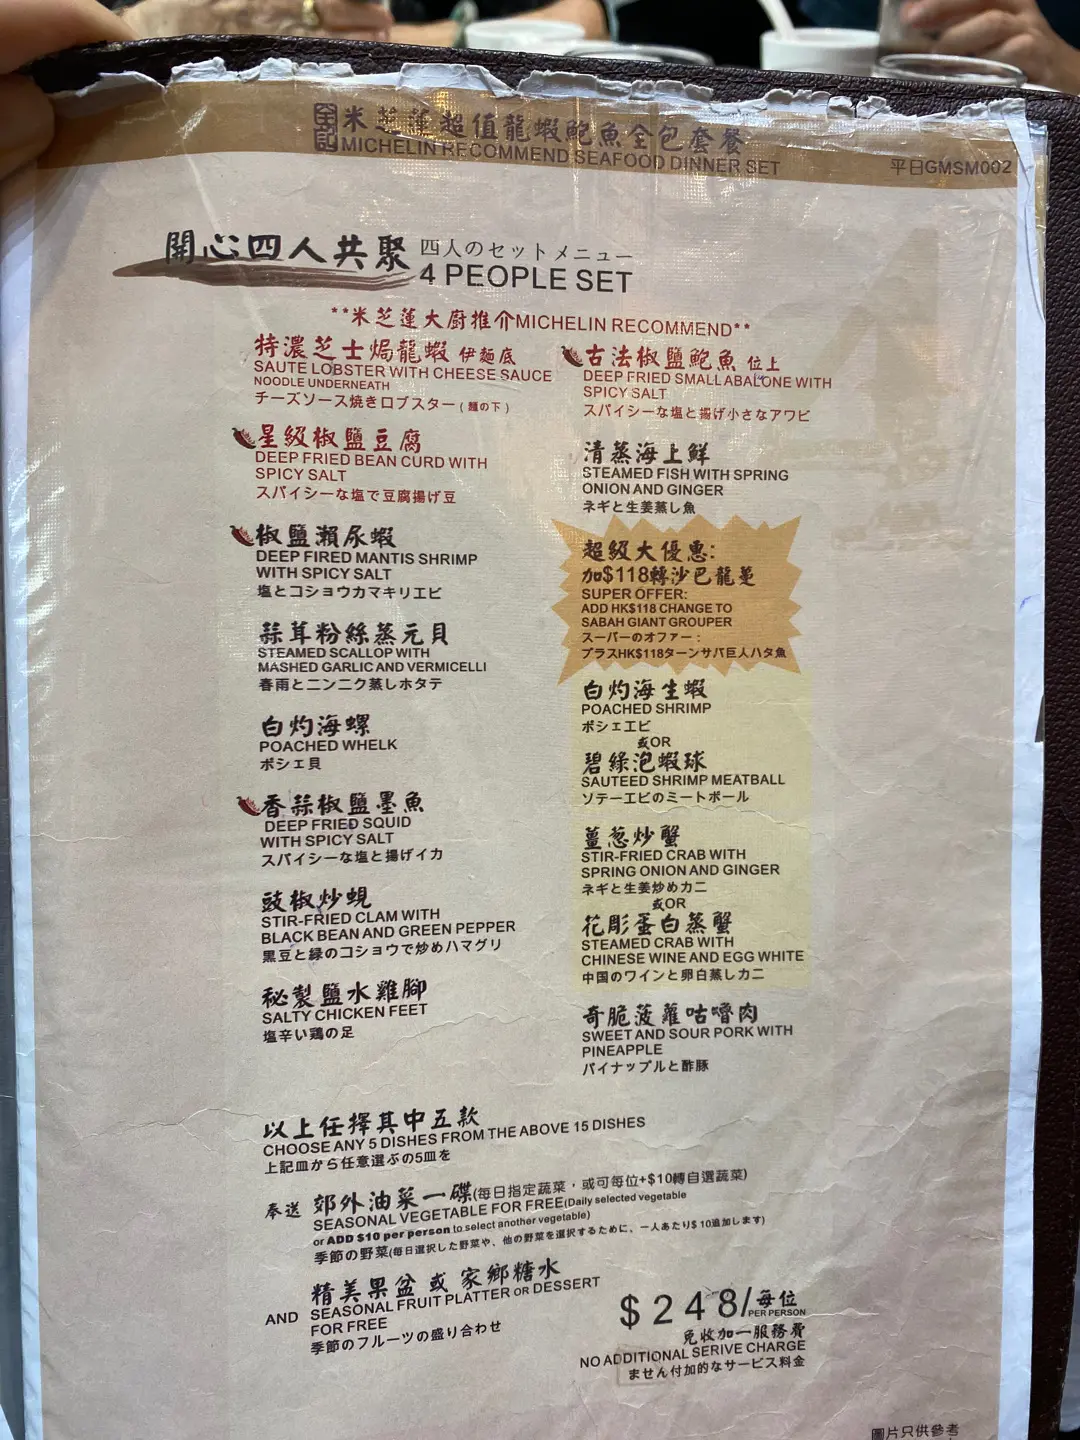 全記 米芝蓮超值龍蝦鮑魚全包套餐
MICHELIN RECOMMEND SEAFOOD DINNER SET
平日GMSM002
開心四人共聚
四人のセットメニュー
4 PEOPLE SET
**米芝蓮大廚推介MICHELIN RECOMMEND**
特濃芝士焗龍蝦 伊麵底
SAUTE LOBSTER WITH CHEESE SAUCE
NOODLE UNDERNEATH
チーズソース焼きロブスター(麺の下)
星級椒鹽豆腐
DEEP FRIED BEAN CURD WITH
SPICY SALT
スパイシーな塩で豆腐揚げ豆
椒鹽瀨尿蝦
DEEP FIRED MANTIS SHRIMP
WITH SPICY SALT
塩とコショウカマキリエビ
蒜茸粉絲蒸元貝
STEAMED SCALLOP WITH
MASHED GARLIC AND VERMICELLI
春雨とニンニク蒸しホタテ
白灼海螺
POACHED WHELK
ポシェ貝
香蒜椒鹽墨魚
DEEP FRIED SQUID
WITH SPICY SALT
スパイシーな塩と揚げイカ
豉椒炒蜆
STIR-FRIED CLAM WITH
BLACK BEAN AND GREEN PEPPER
黒豆と緑のコショウで炒めハマグリ
秘製鹽水雞腳
SALTY CHICKEN FEET
塩辛い鶏の足
古法椒鹽鮑魚 位上
DEEP FRIED SMALL ABALONE WITH
SPICY SALT
スパイシーな塩と揚げ小さなアワビ
清蒸海上鮮
STEAMED FISH WITH SPRING
ONION AND GINGER
ネギと生姜蒸し魚
超級大優惠:
加$118轉沙巴龍躉
SUPER OFFER:
ADD HK$118 CHANGE TO
SABAH GIANT GROUPER
スーパーのオファー:
プラスHK$118ターンサバ巨人ハタ魚
白灼海生蝦
POACHED SHRIMP
ポシェエビ
或OR
碧綠泡蝦球
SAUTEED SHRIMP MEATBALL
ソテーエビのミートボール
薑葱炒蟹
STIR-FRIED CRAB WITH
SPRING ONION AND GINGER
ネギと生姜炒めカニ
或OR
花彫蛋白蒸蟹
STEAMED CRAB WITH
CHINESE WINE AND EGG WHITE
中国のワインと卵白蒸しカニ
奇脆菠蘿咕嚕肉
SWEET AND SOUR PORK WITH
PINEAPPLE
パイナップルと酢豚
以上任擇其中五款
CHOOSE ANY 5 DISHES FROM THE ABOVE 15 DISHES
上記皿から任意選ぶの5皿を
奉送 郊外油菜一碟(每日指定蔬菜，或可每位+$10轉自選蔬菜)
SEASONAL VEGETABLE FOR FREE(Daily selected vegetable
or ADD $10 per person to select another vegetable)
季節の野菜(毎日選択した野菜や、他の野菜を選択するために、一人あたり$ 10追加します)
精美果盆 或 家鄉糖水
AND SEASONAL FRUIT PLATTER OR DESSERT
FOR FREE
季節のフルーツの盛り合わせ
$248/每位
PER PERSON
免收加一服務費
NO ADDITIONAL SERIVE CHARGE
ません付加的なサービス料金
圖片只供參考